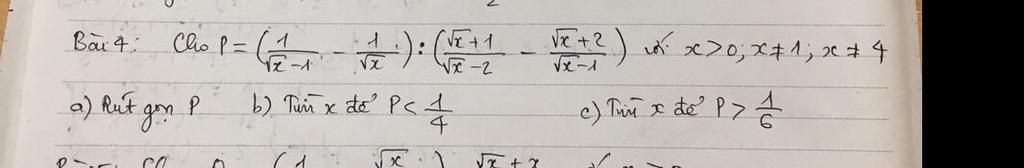 Bài 4: Cho P = (1/(√x-1) - 1/√x) : ((√x+1)/(√x-2) - (√x+2)/(√x-1)) với x>0; x≠1; x≠4
a) Rút gọn P b) Tìm x để P < 1/4 c) Tìm x để P > 1/6